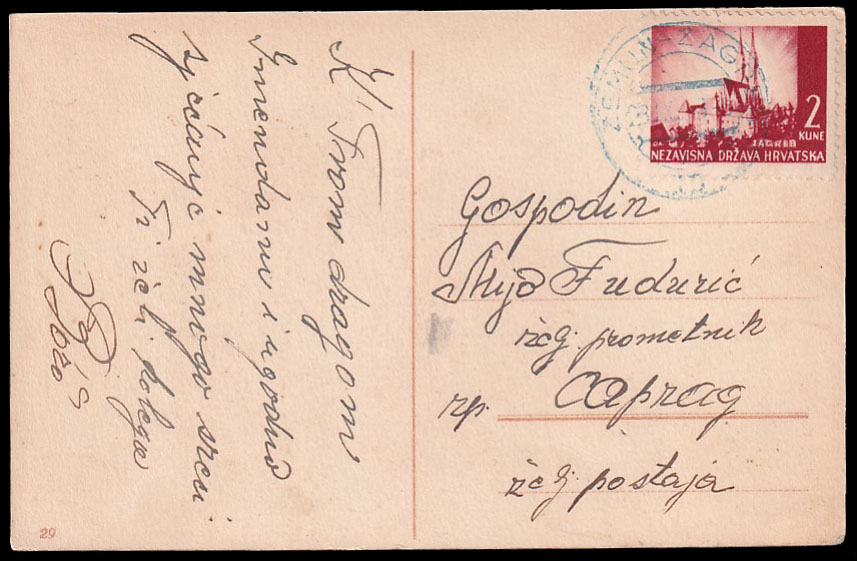 K' Tvom dragom
Imendanu i ugodno
sjećanje mnogo sreće
Ti želi kolega
Božo
ZEMUN-ZAG
2
KUNE
ZAGREB
NEZAVISNA DRŽAVA HRVATSKA
Gospodin
Mijo Fudurić
želj. prometnik
rp. Caprag
želj. postaja
29